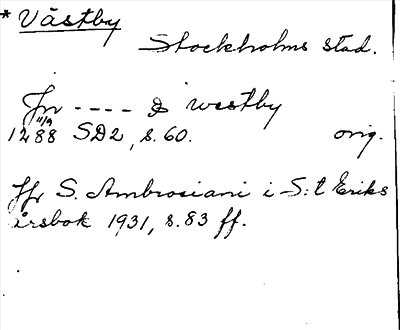 * Västby
Stockholms stad.
Jn ---- & westby
11/9
1288 SD2, s. 60. orig.
Jfr S. Ambrosiani i S:t Eriks
årsbok 1931, s. 83 ff.